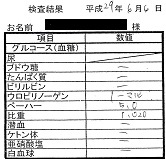 検査結果 平成29年6月6日
お名前
項目 数値
グルコース(血糖)
尿
ブドウ糖 —
たんぱく質 —
ビリルビン —
ウロビリノーゲン
ペーハー 5.0
比重 1.020
潜血 —
ケトン体 —
亜硝酸塩 —
白血球 —